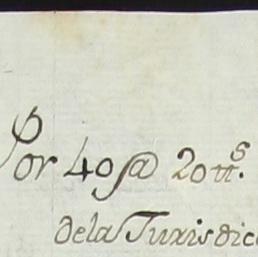 Por 40@ 20tt.s
dela Jurisdic